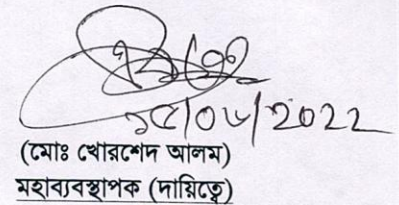 ১৫/০৬/2022
(মোঃ খোরশেদ আলম)
মহাব্যবস্থাপক (দায়িত্বে)